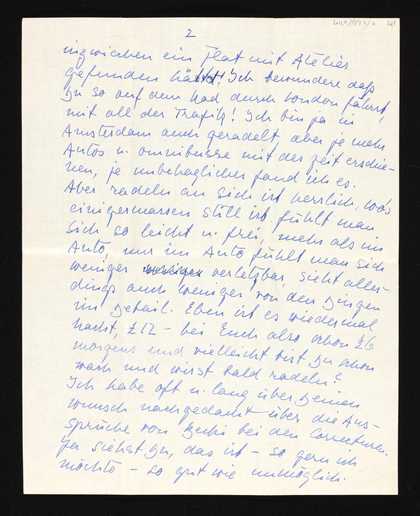 2
inzwischen ein Flat mit Atelier
gefunden hättet! Ich bewundere dass
Du so auf dem Rad durch London fährst,
mit all der Trafik! Ich bin ja in
Amsterdam auch geradelt, aber je mehr
Autos u. Omnibusse mit der Zeit erschie-
nen, je unbehaglicher fand ich es.
Aber radeln an sich ist herrlich, wo's
einigermassen still ist fühlt man
sich so leicht u. frei, mehr als im
Auto, nur im Auto fühlt man sich
weniger verletzbar, sieht aller-
dings auch weniger von den Dingen
im Detail. Eben ist es wiedermal
Nacht, – bei Euch also schon
morgens und vielleicht bist Du schon
wach und wirst bald radeln?
Ich habe oft u. lang über Deinen
Wunsch nachgedacht über die Aus-
sprüche von bei den Correcturen.
Ja siehst Du, das ist – so gern ich
möchte – so gut wie unmöglich.